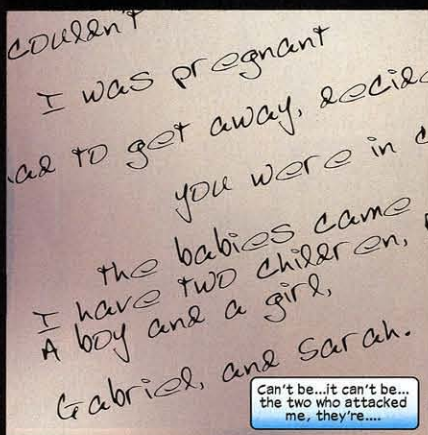 couldn't
I was pregnant
had to get away, decide
you were in
the babies came
I have two children,
A boy and a girl,
Gabriel, and Sarah.
Can't be...it can't be...
the two who attacked
me, they're....